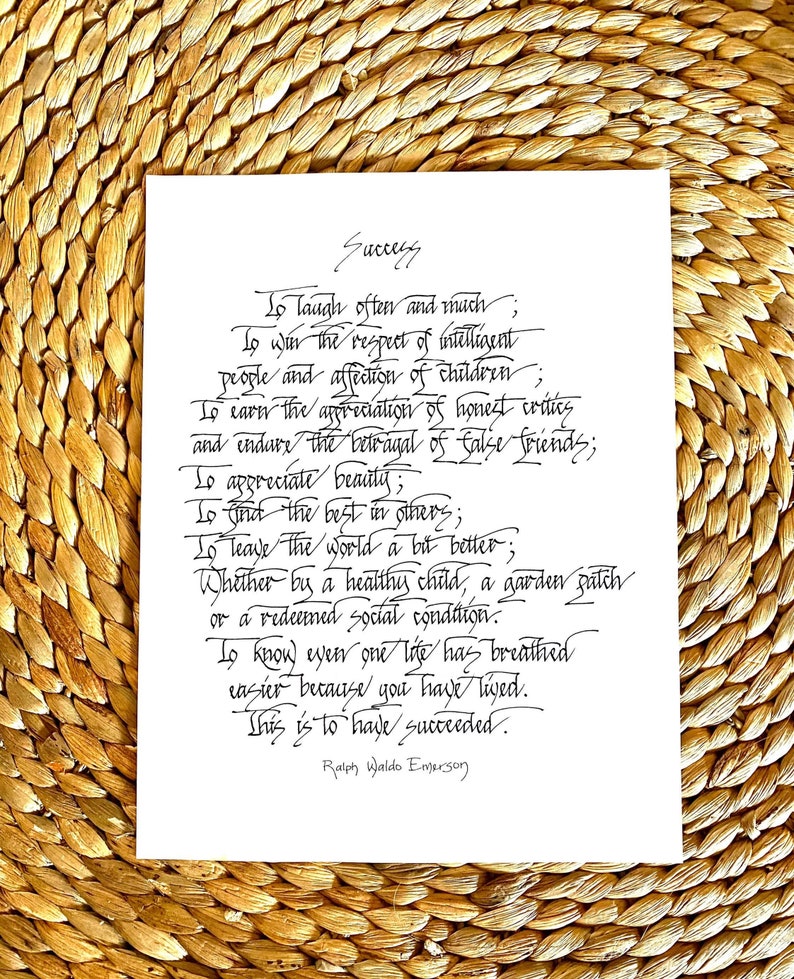 Success
To laugh often and much ;
To win the respect of intelligent
people and affection of children ;
To earn the appreciation of honest critics
and endure the betrayal of false friends;
To appreciate beauty ;
To find the best in others;
To leave the world a bit better ;
Whether by a healthy child, a garden patch
or a redeemed social condition.
To know even one life has breathed
easier because you have lived.
This is to have succeeded.
Ralph Waldo Emerson